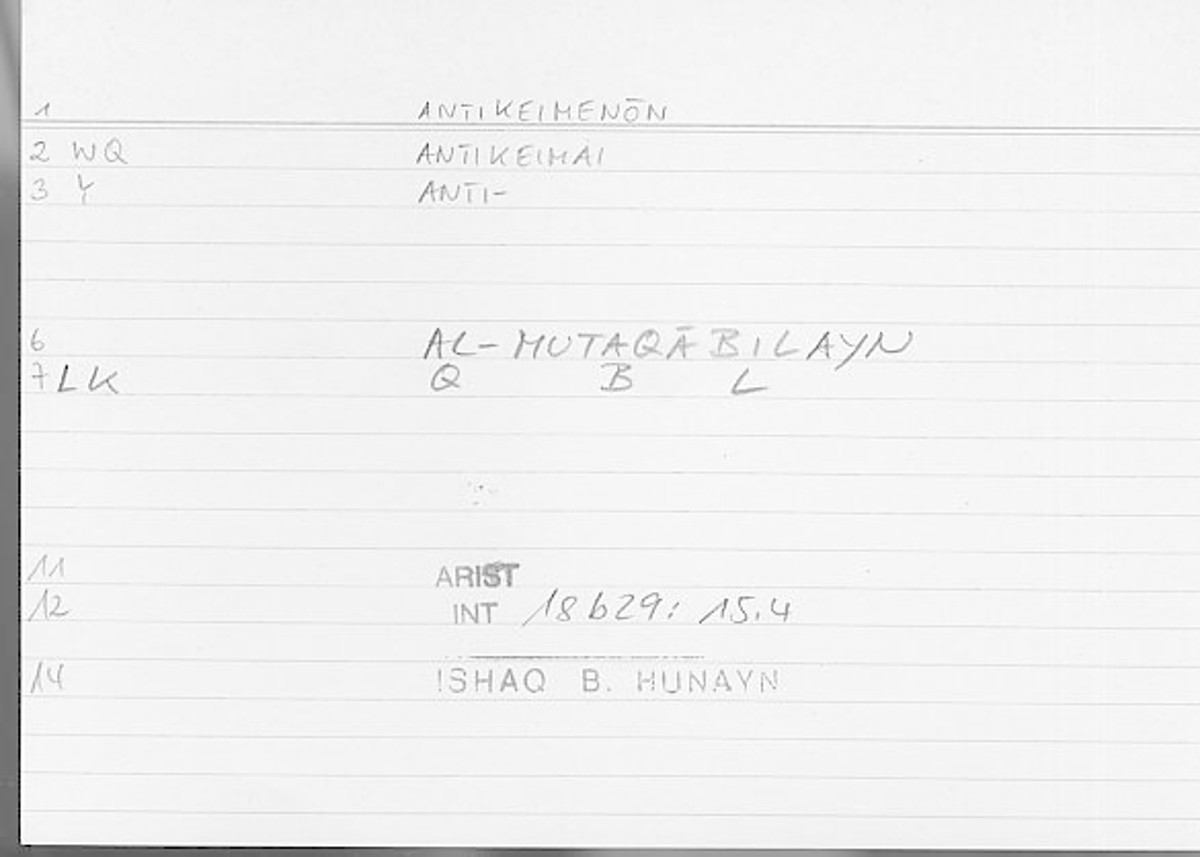 1 ANTIKEIMENŌN
2 WQ ANTIKEIMAI
3 Y ANTI-
6 AL-MUTAQĀBILAYN
7 LK Q B L
11 ARIST
12 INT 18b29: 15.4
14 ISHAQ B. HUNAYN